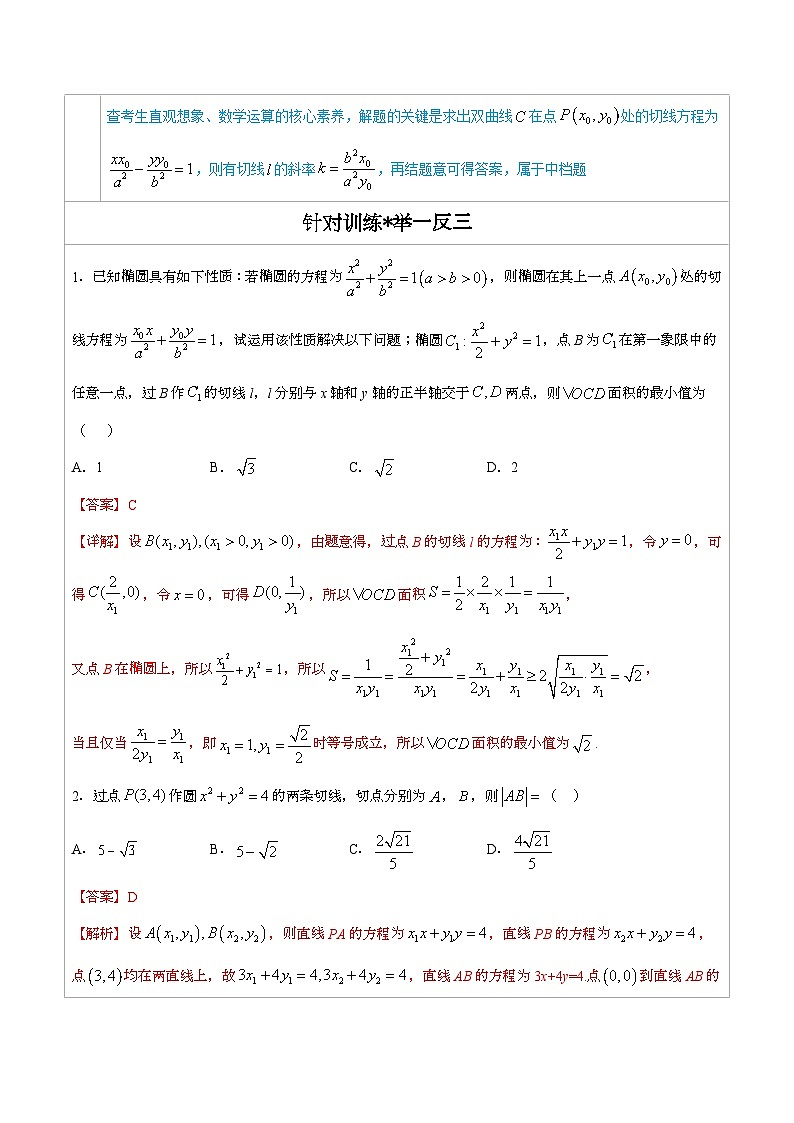 查考生直观想象、数学运算的核心素养，解题的关键是求出双曲线 C 在点 P(x₀, y₀) 处的切线方程为
xx₀/a² − yy₀/b² = 1，则有切线 l 的斜率 k = b²x₀/a²y₀，再结题意可得答案，属于中档题
针对训练*举一反三
1. 已知椭圆具有如下性质：若椭圆的方程为 x²/a² + y²/b² = 1(a > b > 0)，则椭圆在其上一点 A(x₀, y₀) 处的切
线方程为 x₀x/a² + y₀y/b² = 1，试运用该性质解决以下问题；椭圆 C₁ : x²/2 + y² = 1，点 B 为 C₁ 在第一象限中的
任意一点，过 B 作 C₁ 的切线 l，l 分别与 x 轴和 y 轴的正半轴交于 C, D 两点，则 ∨OCD 面积的最小值为
（ ）
A. 1 B. √3 C. √2 D. 2
【答案】C
【详解】设 B(x₁, y₁), (x₁ > 0, y₁ > 0)，由题意得，过点 B 的切线 l 的方程为：x₁x/2 + y₁y = 1，令 y = 0，可
得 C(2/x₁, 0)，令 x = 0，可得 D(0, 1/y₁)，所以 ∨OCD 面积 S = 1/2 × 2/x₁ × 1/y₁ = 1/x₁y₁，
又点 B 在椭圆上，所以 x₁²/2 + y₁² = 1，所以 S = 1/x₁y₁ = (x₁²/2 + y₁²)/x₁y₁ = x₁/2y₁ + y₁/x₁ ≥ 2√(x₁/2y₁ · y₁/x₁) = √2，
当且仅当 x₁/2y₁ = y₁/x₁，即 x₁ = 1, y₁ = √2/2 时等号成立，所以 ∨OCD 面积的最小值为 √2 .
2. 过点 P(3, 4) 作圆 x² + y² = 4 的两条切线，切点分别为 A，B，则 |AB| = （ ）
A. 5 − √3 B. 5 − √2 C. 2√21/5 D. 4√21/5
【答案】D
【解析】设 A(x₁, y₁), B(x₂, y₂)，则直线 PA 的方程为 x₁x + y₁y = 4，直线 PB 的方程为 x₂x + y₂y = 4，
点 (3, 4) 均在两直线上，故 3x₁ + 4y₁ = 4, 3x₂ + 4y₂ = 4，直线 AB 的方程为 3x+4y=4.点 (0, 0) 到直线 AB 的